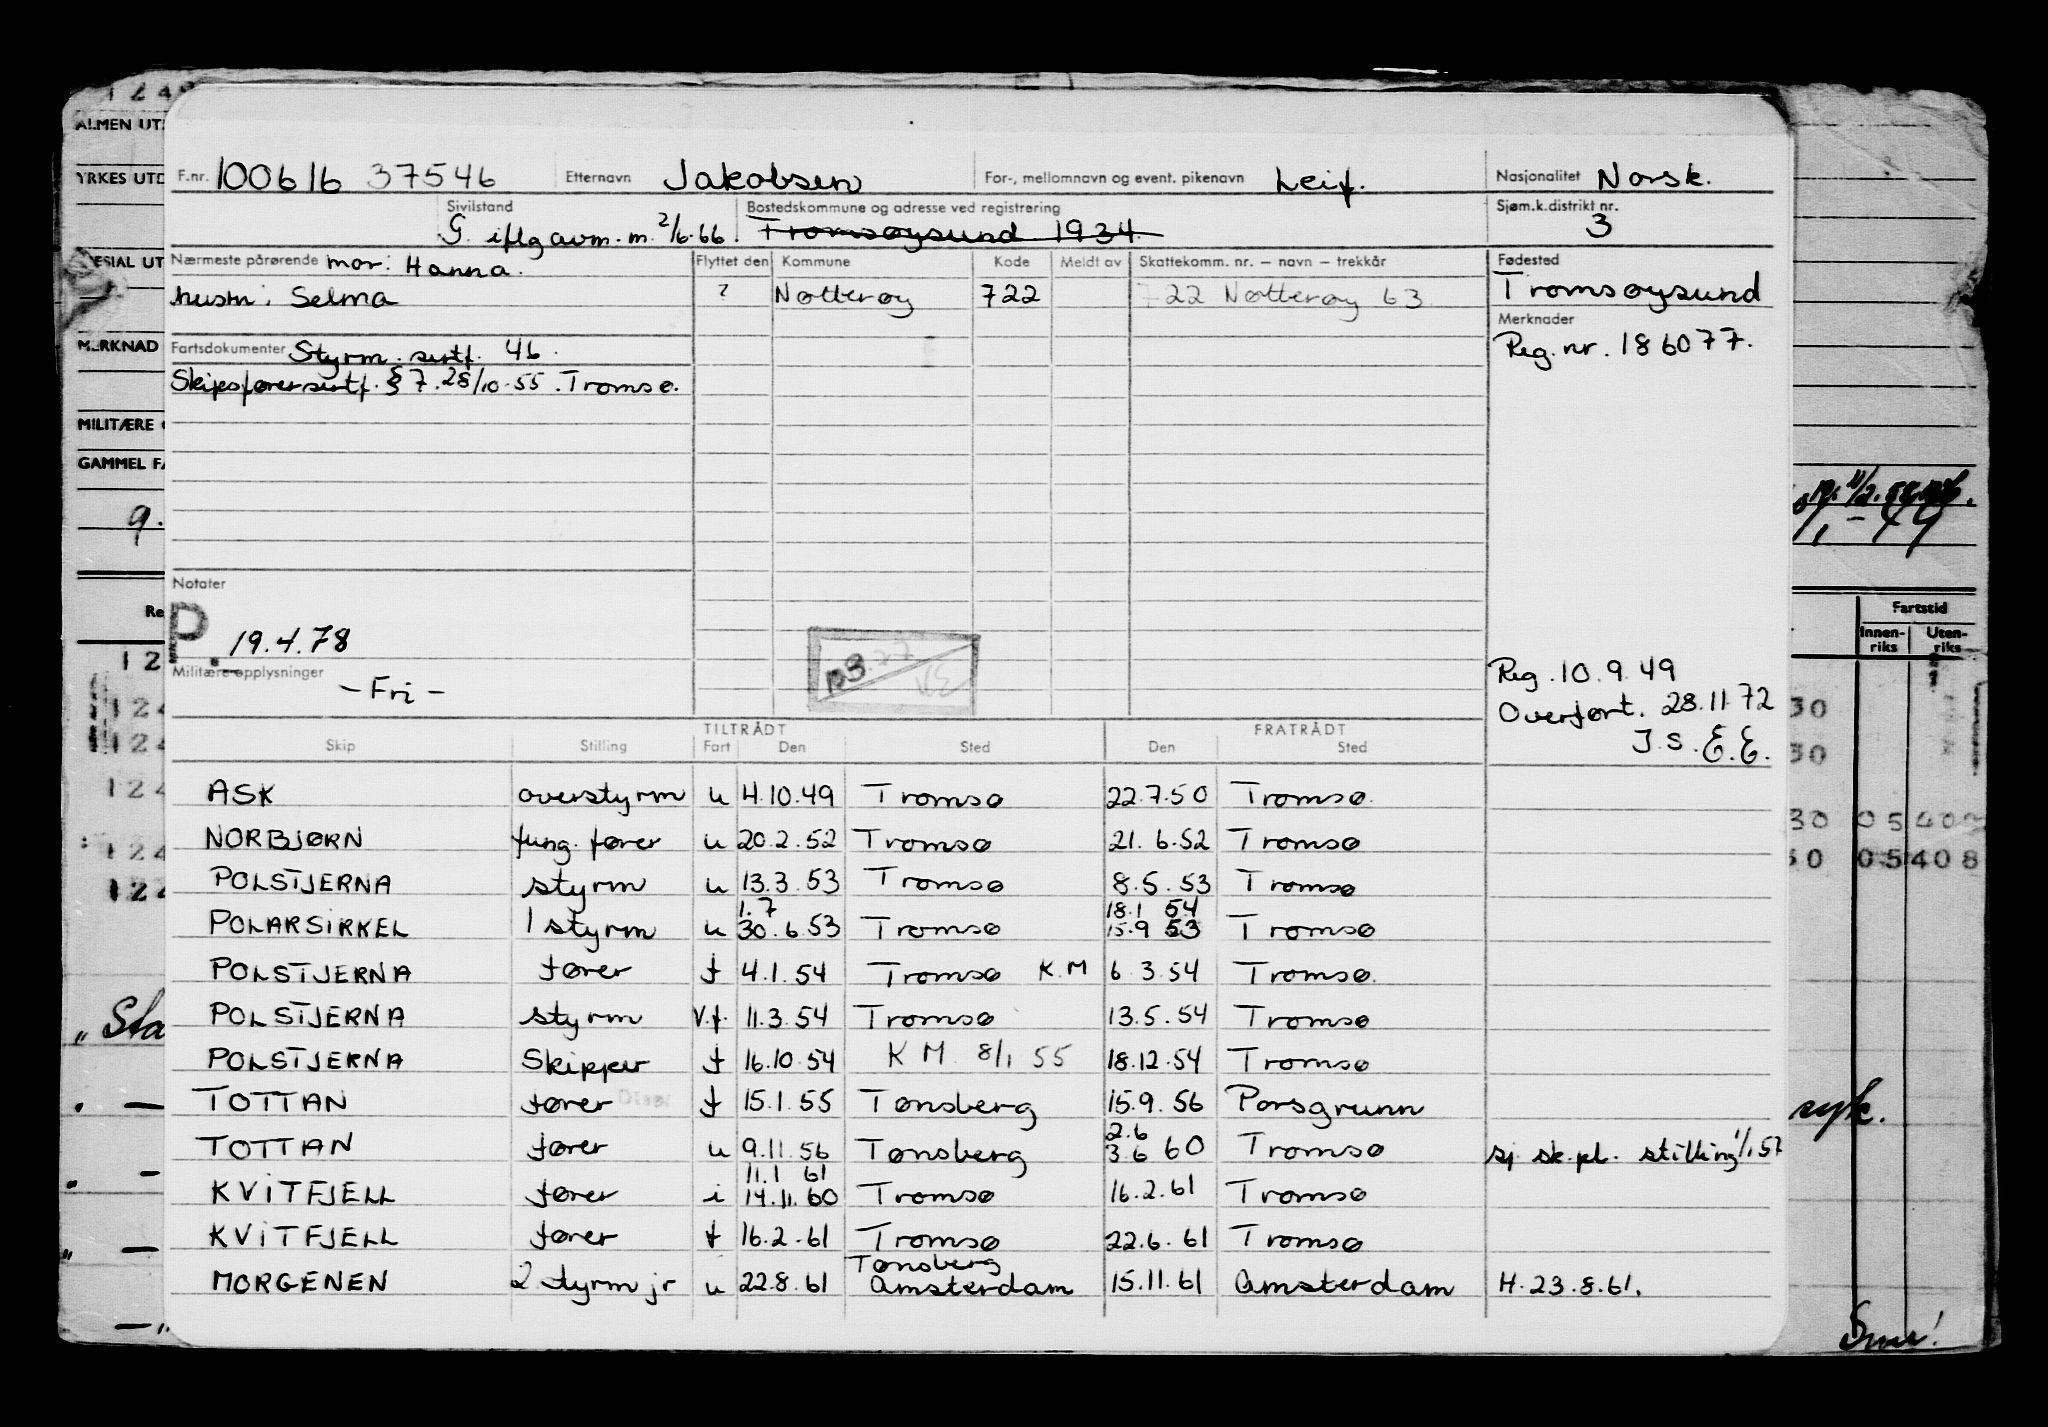 F.nr. 100616 37546 Etternavn Jakobsen For-, mellomnavn og event. pikenavn Leif. Nasjonalitet Norsk.
Sivilstand G. iflg avm. m. 2/6.66. Bostedskommune og adresse ved registrering Tromsøysund 1934. Sjøm.k.distrikt nr. 3
Nærmeste pårørende mor: Hanna. Flyttet den Kommune Kode Meldt av Skattekomm. nr. – navn – trekkår Fødested
hustr: Selma ? Nøtterøy 722 722 Nøtterøy 63 Tromsøysund
Merknader
Fartsdokumenter Styrm. sertf. 46. Reg. nr. 186077.
Skipsførersertf. § 7. 28/10-55. Tromsø.
Notater
P. 19.4.78
Militære opplysninger
– Fri –
Reg. 10.9.49
Overført. 28.11.72
J.S. E.E.
TILTRÅDT FRATRÅDT
Skip Stilling Fart Den Sted Den Sted
ASK overstyrm u 4.10.49 Tromsø 22.7.50 Tromsø.
NORBJØRN fung. fører u 20.2.52 Tromsø 21.6.52 Tromsø
POLSTJERNA styrm u 13.3.53 Tromsø 8.5.53 Tromsø
1.7 18.1 54
POLARSIRKEL 1 styrm u 30.6.53 Tromsø 15.9 53 Tromsø
POLSTJERNA fører f 4.1.54 Tromsø K.M 6.3.54 Tromsø.
POLSTJERNA styrm v.f. 11.3.54 Tromsø 13.5.54 Tromsø
POLSTJERNA Skipper f 16.10.54 K M 8/1 55 18.12.54 Tromsø
TOTTAN fører f 15.1.55 Tønsberg 15.9.56 Porsgrunn
2.6
TOTTAN fører u 9.11.56 Tønsberg 3.6 60 Tromsø sj. sk.pl. stilling 1/1 57
11.1 61
KVITFJELL fører i 14.11.60 Tromsø 16.2.61 Tromsø
KVITFJELL fører f 16.2.61 Tromsø 22.6.61 Tromsø
Tønsberg
MORGENEN 2 styrm jr u 22.8.61 Amsterdam 15.11.61 Amsterdam H. 23.8.61.
ALMEN UT
YRKES UTD
ESIAL UT
MERKNAD
MILITÆRE
GAMMEL FA
9.
Fartstid
Innen-riks Uten-riks
30
30
30 05 408
30 05 408